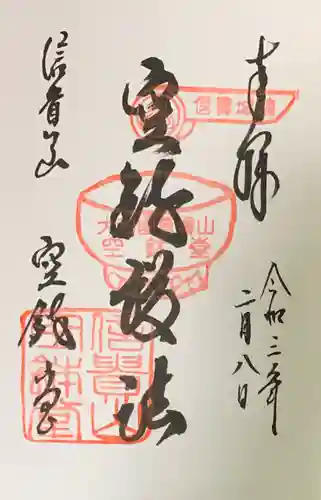 奉拝
令和三年
二月八日
空鉢護法
信貴山
空鉢堂
空鉢堂
信貴山
空鉢堂